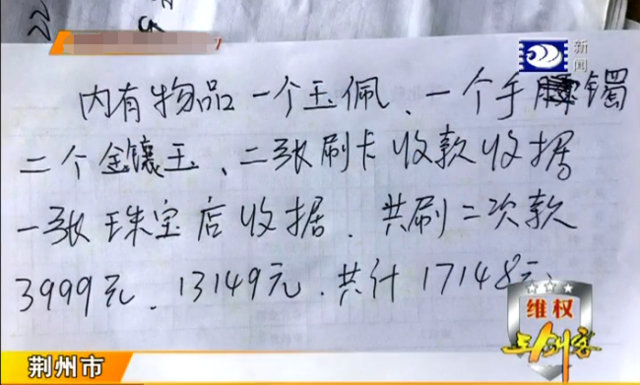 新闻
内有物品一个玉佩、一个手镯
二个金镶玉、二张刷卡收款收据
一张珠宝店收据.共刷二次款
3999元、13149元.共计17148元、
维权
三剑客
荆州市